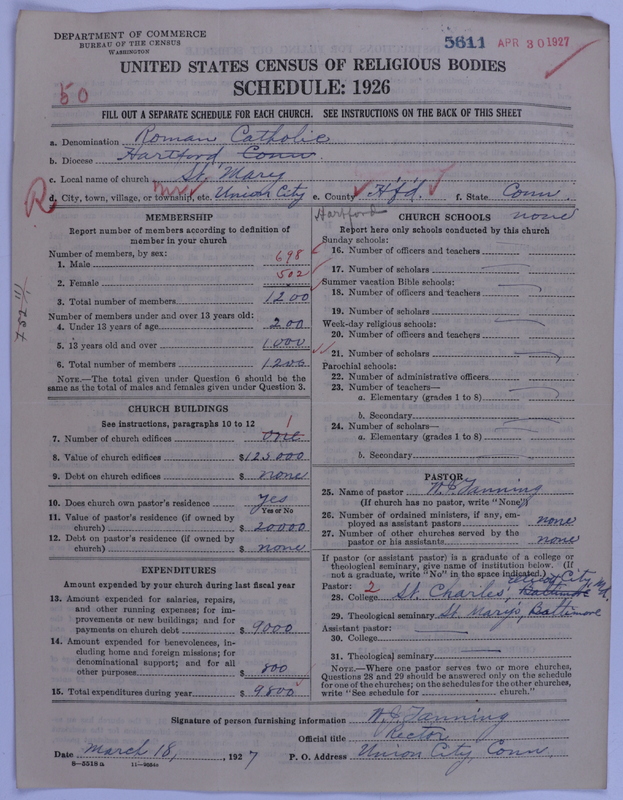 DEPARTMENT OF COMMERCE
BUREAU OF THE CENSUS
WASHINGTON
5611 APR 30 1927
UNITED STATES CENSUS OF RELIGIOUS BODIES
SCHEDULE: 1926
50
FILL OUT A SEPARATE SCHEDULE FOR EACH CHURCH. SEE INSTRUCTIONS ON THE BACK OF THIS SHEET
a. Denomination Roman Catholic
b. Diocese Hartford Conn.
c. Local name of church St. Mary
R
d. City, town, village, or township, etc. Union City e. County Hfd. f. State Conn.
Hartford
MEMBERSHIP
Report number of members according to definition of
member in your church
Number of members, by sex:
1. Male 698
2. Female 502
3. Total number of members 1200
Number of members under and over 13 years old:
4. Under 13 years of age 200
5. 13 years old and over 1000
6. Total number of members 1200
NOTE.—The total given under Question 6 should be the
same as the total of males and females given under Question 3.
CHURCH BUILDINGS
See instructions, paragraphs 10 to 12
1
7. Number of church edifices one
8. Value of church edifices $125.000
9. Debt on church edifices $ none
10. Does church own pastor's residence yes
Yes or No
11. Value of pastor's residence (if owned by
church) $ 20000
12. Debt on pastor's residence (if owned by
church) $ none
EXPENDITURES
Amount expended by your church during last fiscal year
13. Amount expended for salaries, repairs,
and other running expenses; for im-
provements or new buildings; and for
payments on church debt $ 9000
14. Amount expended for benevolences, in-
cluding home and foreign missions; for
denominational support; and for all
other purposes $ 800
15. Total expenditures during year $ 9800
CHURCH SCHOOLS none
Report here only schools conducted by this church
Sunday schools:
16. Number of officers and teachers
17. Number of scholars
Summer vacation Bible schools:
18. Number of officers and teachers
19. Number of scholars
Week-day religious schools:
20. Number of officers and teachers
21. Number of scholars
Parochial schools:
22. Number of administrative officers
23. Number of teachers—
a. Elementary (grades 1 to 8)
b. Secondary
24. Number of scholars—
a. Elementary (grades 1 to 8)
b. Secondary
PASTOR
25. Name of pastor W. J. Fanning
(If church has no pastor, write "None")
26. Number of ordained ministers, if any, em-
ployed as assistant pastors none
27. Number of other churches served by the
pastor or his assistants none
If pastor (or assistant pastor) is a graduate of a college or
theological seminary, give name of institution below. (If
not a graduate, write "No" in the space indicated.)
Pastor: 2 Ellicott City Md.
28. College St. Charles', Baltimore
29. Theological seminary St. Mary's, Baltimore
Assistant pastor:
30. College
31. Theological seminary
NOTE.—Where one pastor serves two or more churches,
Questions 28 and 29 should be answered only on the schedule
for one of the churches; on the schedules for the other churches,
write "See schedule for church."
Signature of person furnishing information W. J. Fanning
Official title Rector
Date March 18, 1927 P. O. Address Union City, Conn.
8—5518a